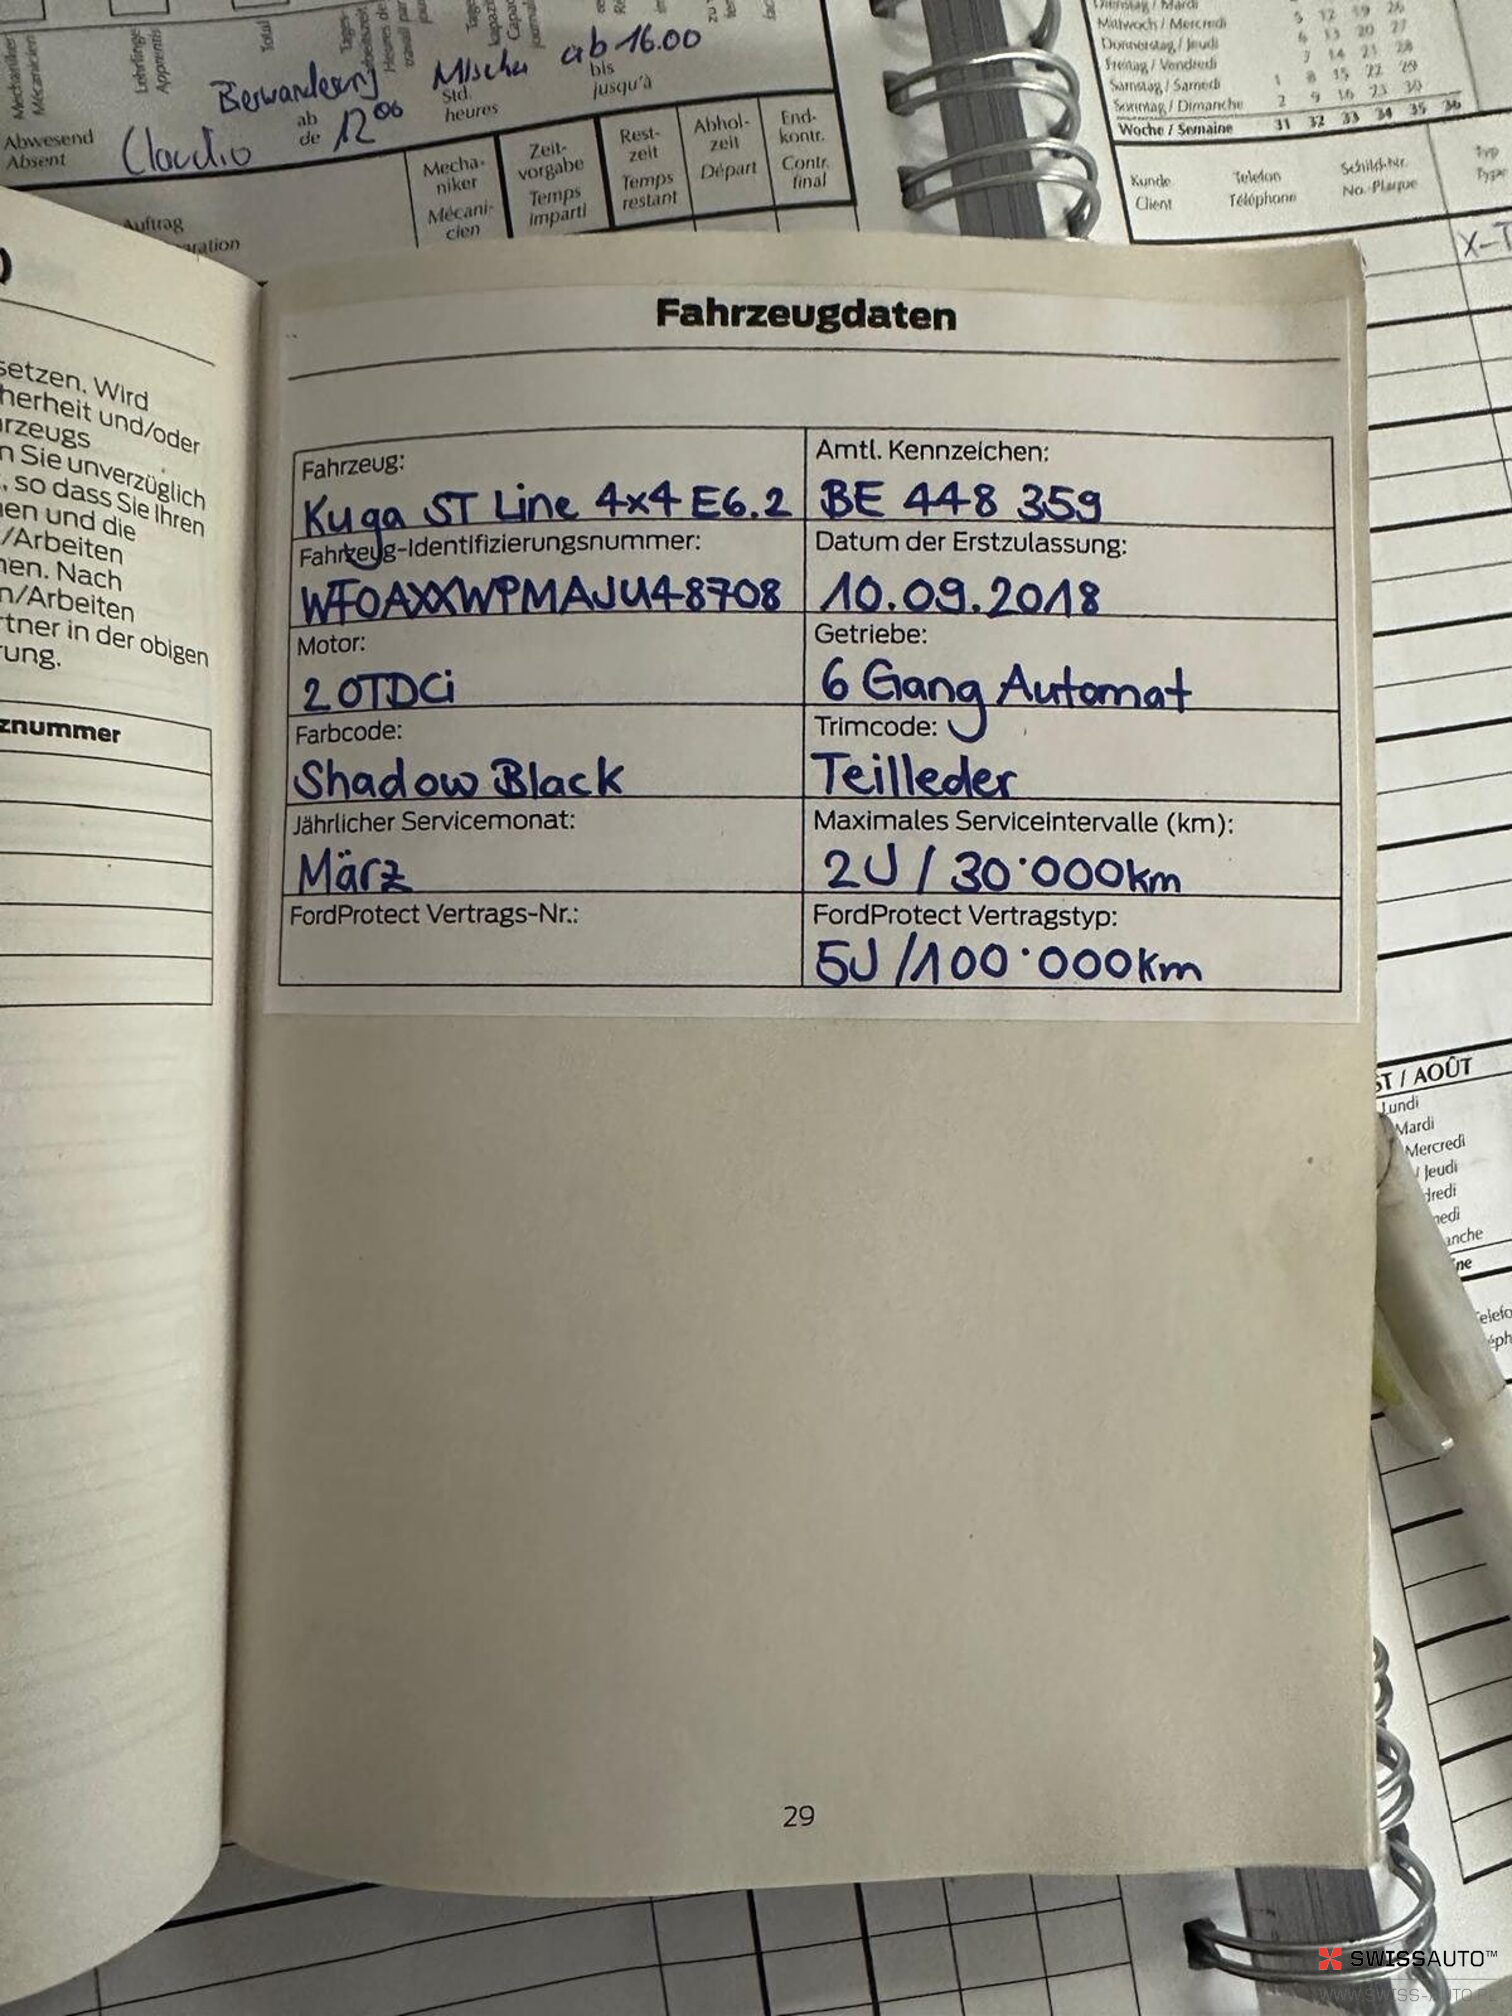 Mechaniker
Mécanicien
Lehrlinge
Apprentis
Total
Abwesend
Absent
Claudio
ab
de
12 00
Mischa ab 16.00
Std.
heures
bis
jusqu'à
Auftrag
Mecha-
niker
Mécani-
cien
Zeit-
vorgabe
Temps
imparti
Rest-
zeit
Temps
restant
Abhol-
zeit
Départ
End-
kontr.
Contr.
final
Dienstag / Mardi
Mittwoch / Mercredi 5 12 19 26
Donnerstag / Jeudi 6 13 20 27
Freitag / Vendredi 7 14 21 28
Samstag / Samedi 1 8 15 22 29
Sonntag / Dimanche 2 9 16 23 30
Woche / Semaine 31 32 33 34 35 36
Kunde
Client
Telefon
Téléphone
Schild-Nr.
No.-Plaque
Typ
Type
X-T
setzen. Wird
herheit und/oder
rzeugs
n Sie unverzüglich
, so dass Sie Ihren
en und die
/Arbeiten
nen. Nach
n/Arbeiten
rtner in der obigen
rung.
znummer
Fahrzeugdaten
Fahrzeug:
Kuga ST Line 4x4 E6.2
Amtl. Kennzeichen:
BE 448 359
Fahrzeug-Identifizierungsnummer:
WF0AXXWPMAJU48708
Datum der Erstzulassung:
10.09.2018
Motor:
2.0TDCi
Getriebe:
6 Gang Automat
Farbcode:
Shadow Black
Trimcode:
Teilleder
Jährlicher Servicemonat:
März
Maximales Serviceintervalle (km):
2J / 30'000km
FordProtect Vertrags-Nr.:
FordProtect Vertragstyp:
5J /100'000km
29
ST / AOÛT
Lundi
Mardi
Mercredi
/ Jeudi
dredi
medi
anche
ne
Telefo
éph
SWISSAUTO™
WWW.SWISS-AUTO